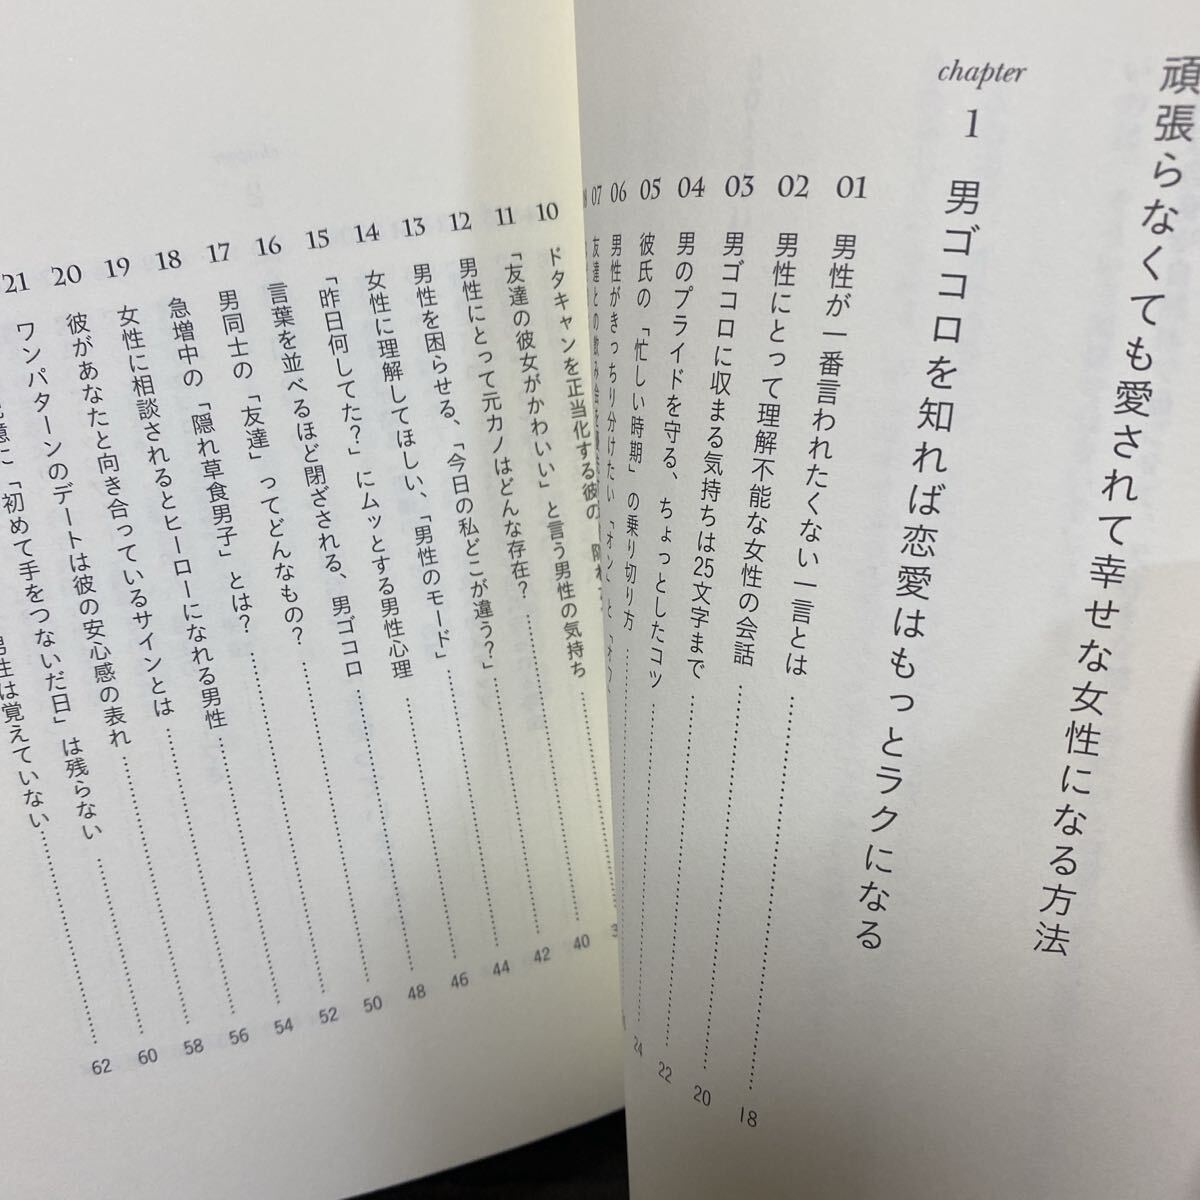 頑張らなくても愛されて幸せな女性になる方法
chapter 1 男ゴコロを知れば恋愛はもっとラクになる
01 男性が一番言われたくない一言とは 18
02 男性にとって理解不能な女性の会話 20
03 男ゴコロに収まる気持ちは25文字まで 22
04 男のプライドを守る、ちょっとしたコツ 24
05 彼氏の「忙しい時期」の乗り切り方
06 男性がきっちり分けたい「オン」と「オフ
07 友達との飲み会を
10 ドタキャンを正当化する彼の
11 「友達の彼女がかわいい」と言う男性の気持ち 40
12 男性にとって元カノはどんな存在? 42
13 男性を困らせる、「今日の私どこが違う?」 44
14 女性に理解してほしい、「男性のモード」 46
15 「昨日何してた?」にムッとする男性心理 48
16 言葉を並べるほど閉ざされる、男ゴコロ 50
17 男同士の「友達」ってどんなもの? 52
18 急増中の「隠れ草食男子」とは? 54
19 女性に相談されるとヒーローになれる男性 56
20 彼があなたと向き合っているサインとは 58
21 ワンパターンのデートは彼の安心感の表れ 60
憶に「初めて手をつないだ日」は残らない 62
男性は覚えていない